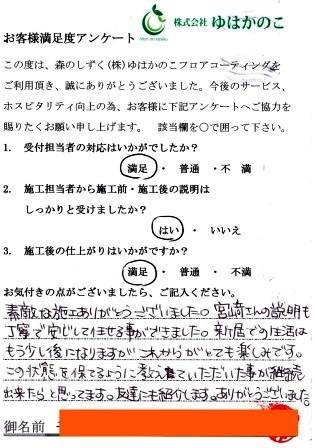 株式会社 ゆはかのこ
お客様満足度アンケート
この度は、森のしずく(株)ゆはかのこフロアコーティングを
ご利用頂き、誠にありがとうございました。今後のサービス、
ホスピタリティ向上の為、お客様に下記アンケートへご協力を
賜りたくお願い申し上げます。 該当欄を○で囲って下さい。
1. 受付担当者の対応はいかがでしたか?
満足 ・ 普通 ・不 満
2. 施工担当者から施工前・施工後の説明は
しっかりと受けましたか?
はい ・ いいえ
3. 施工後の仕上がりはいかがですか?
満足 ・ 普通 ・ 不満
お気付きの点がございましたら、ご記入ください。
素敵な施工ありがとうございました。宮崎さんの説明も
丁寧で安心して任せる事ができました。新居での生活は
もう少し後になりますがこれからがとても楽しみです。
この状態を保てるように教えていただいた事が継続
出来たらと思ってます。友達にも紹介します。ありがとうございました
御名前